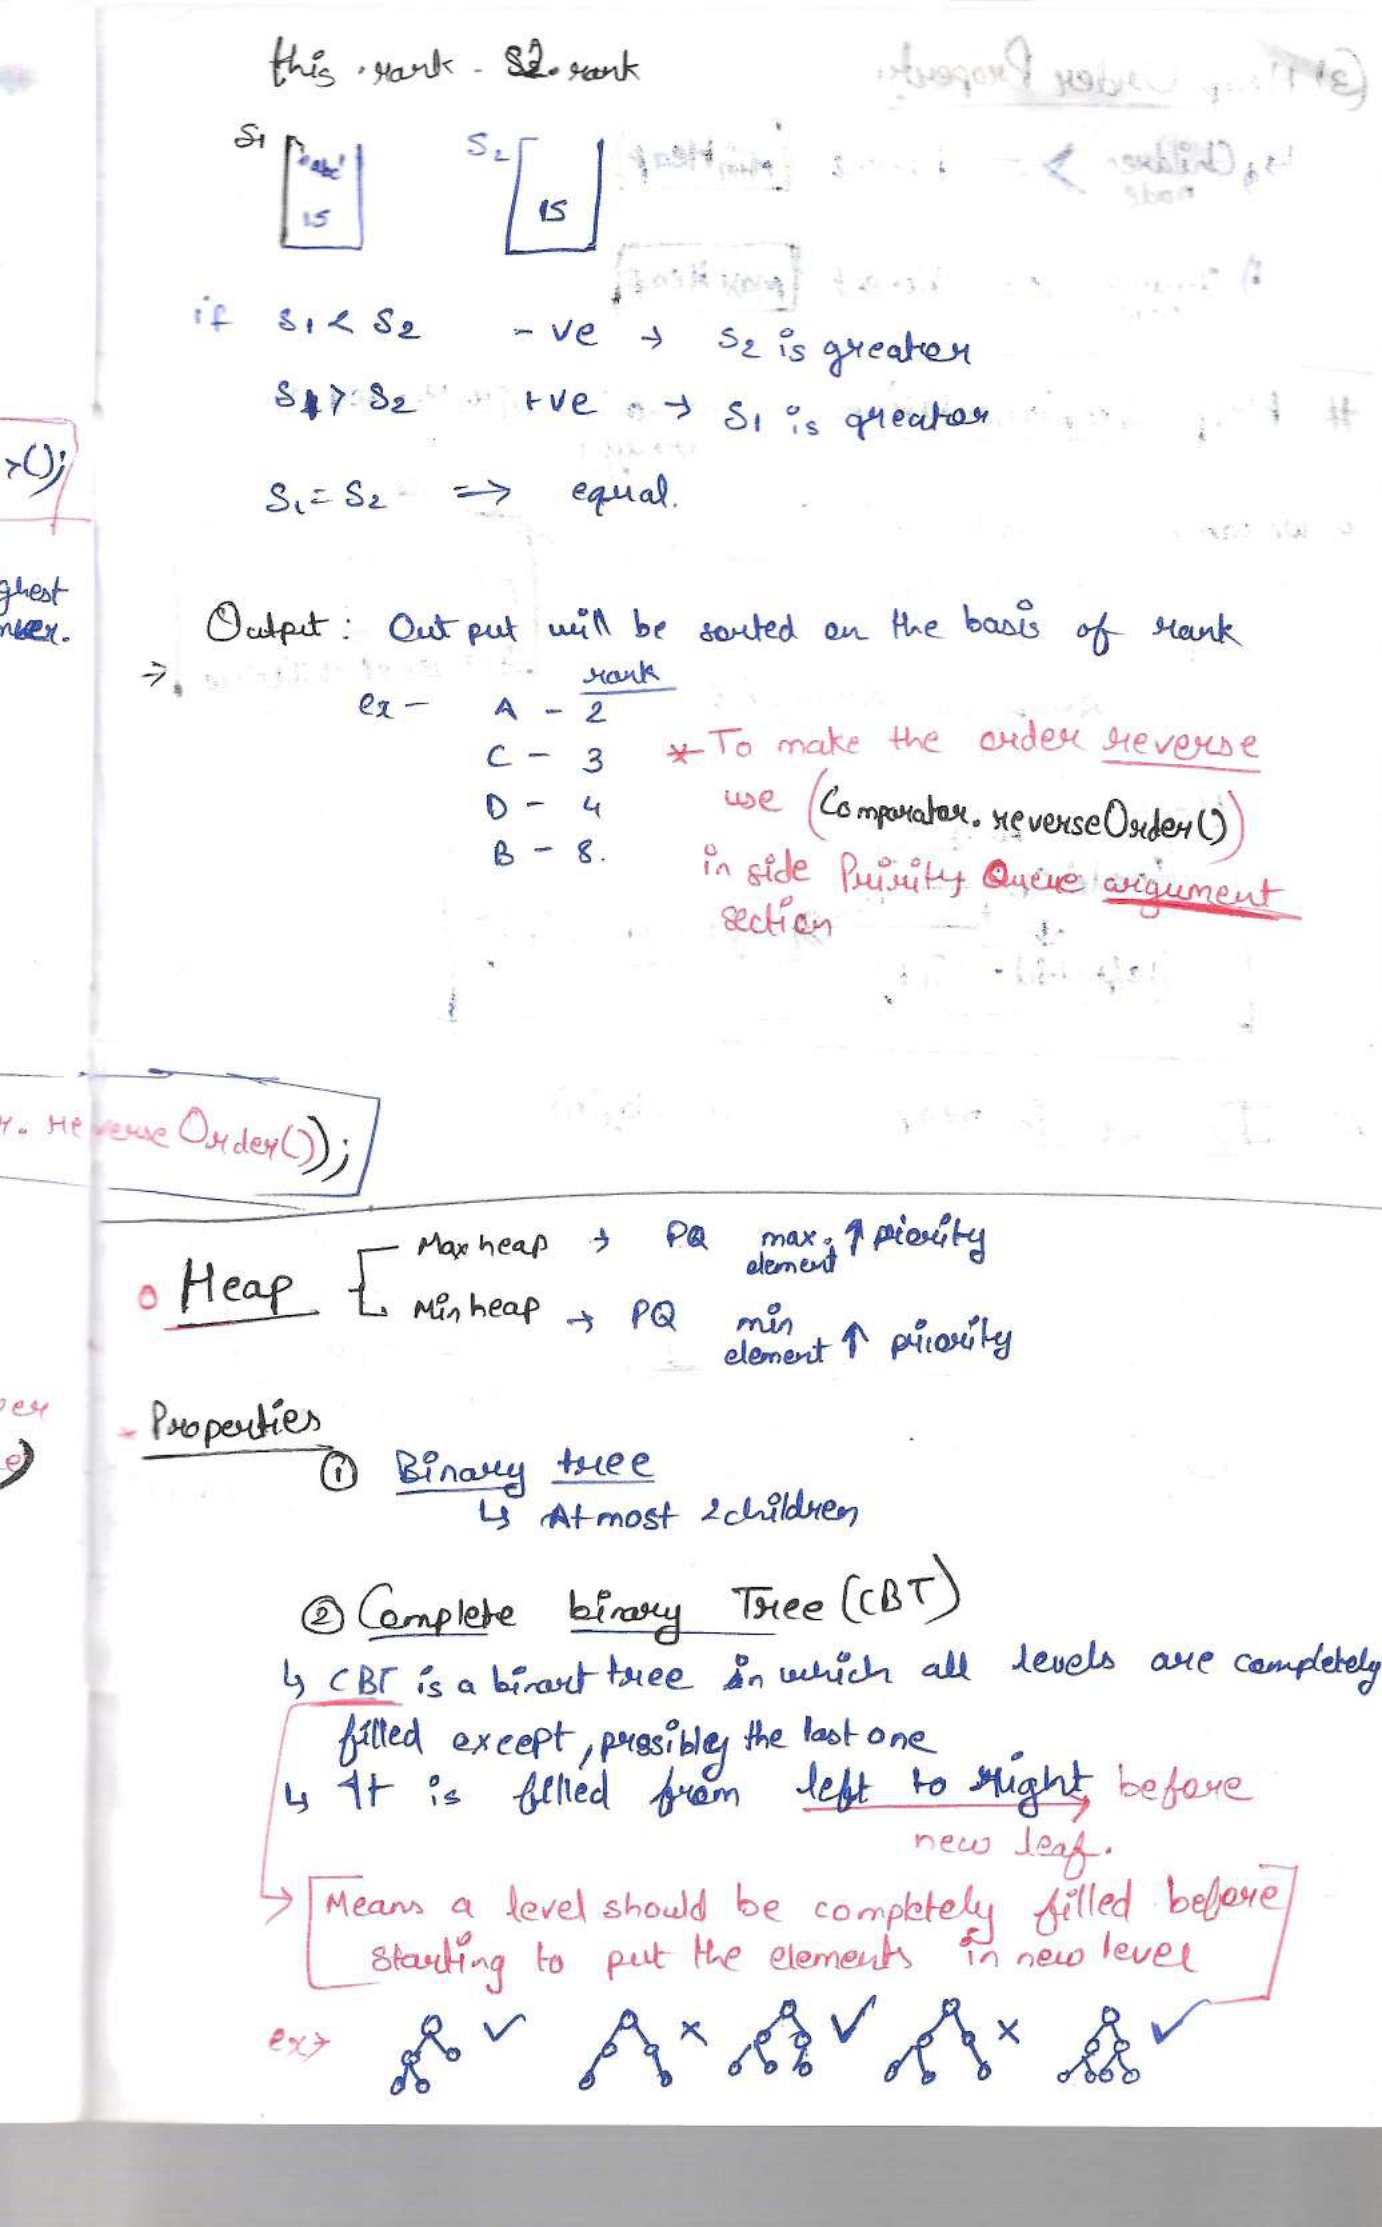 this.rank - S2.rank
S1 "abc" 15
S2 15
if S1 < S2 -ve → S2 is greater
S1 > S2 +ve → S1 is greator
S1 = S2 ⇒ equal.
>();
ghest
Output : Out put will be sorted on the basis of rank
→
rank
ex - A - 2
C - 3
D - 4
B - 8.
* To make the order reverse
use (Comparator.reverseOrder())
in side Pririty Queue argument
section
r. reverse Order());
Heap
Max heap → PQ max. element ↑ piority
Min heap → PQ min element ↑ priority
- Properties
① Binary tree
↳ At most 2 children
② Complete binary Tree (CBT)
↳ CBT is a binart tree in which all levels are completely
filled except, possibly the last one
↳ It is filled from left to right before
new leaf.
→ [Means a level should be completely filled before
starting to put the elements in new level]
ex→ ✓ × ✓ × ✓